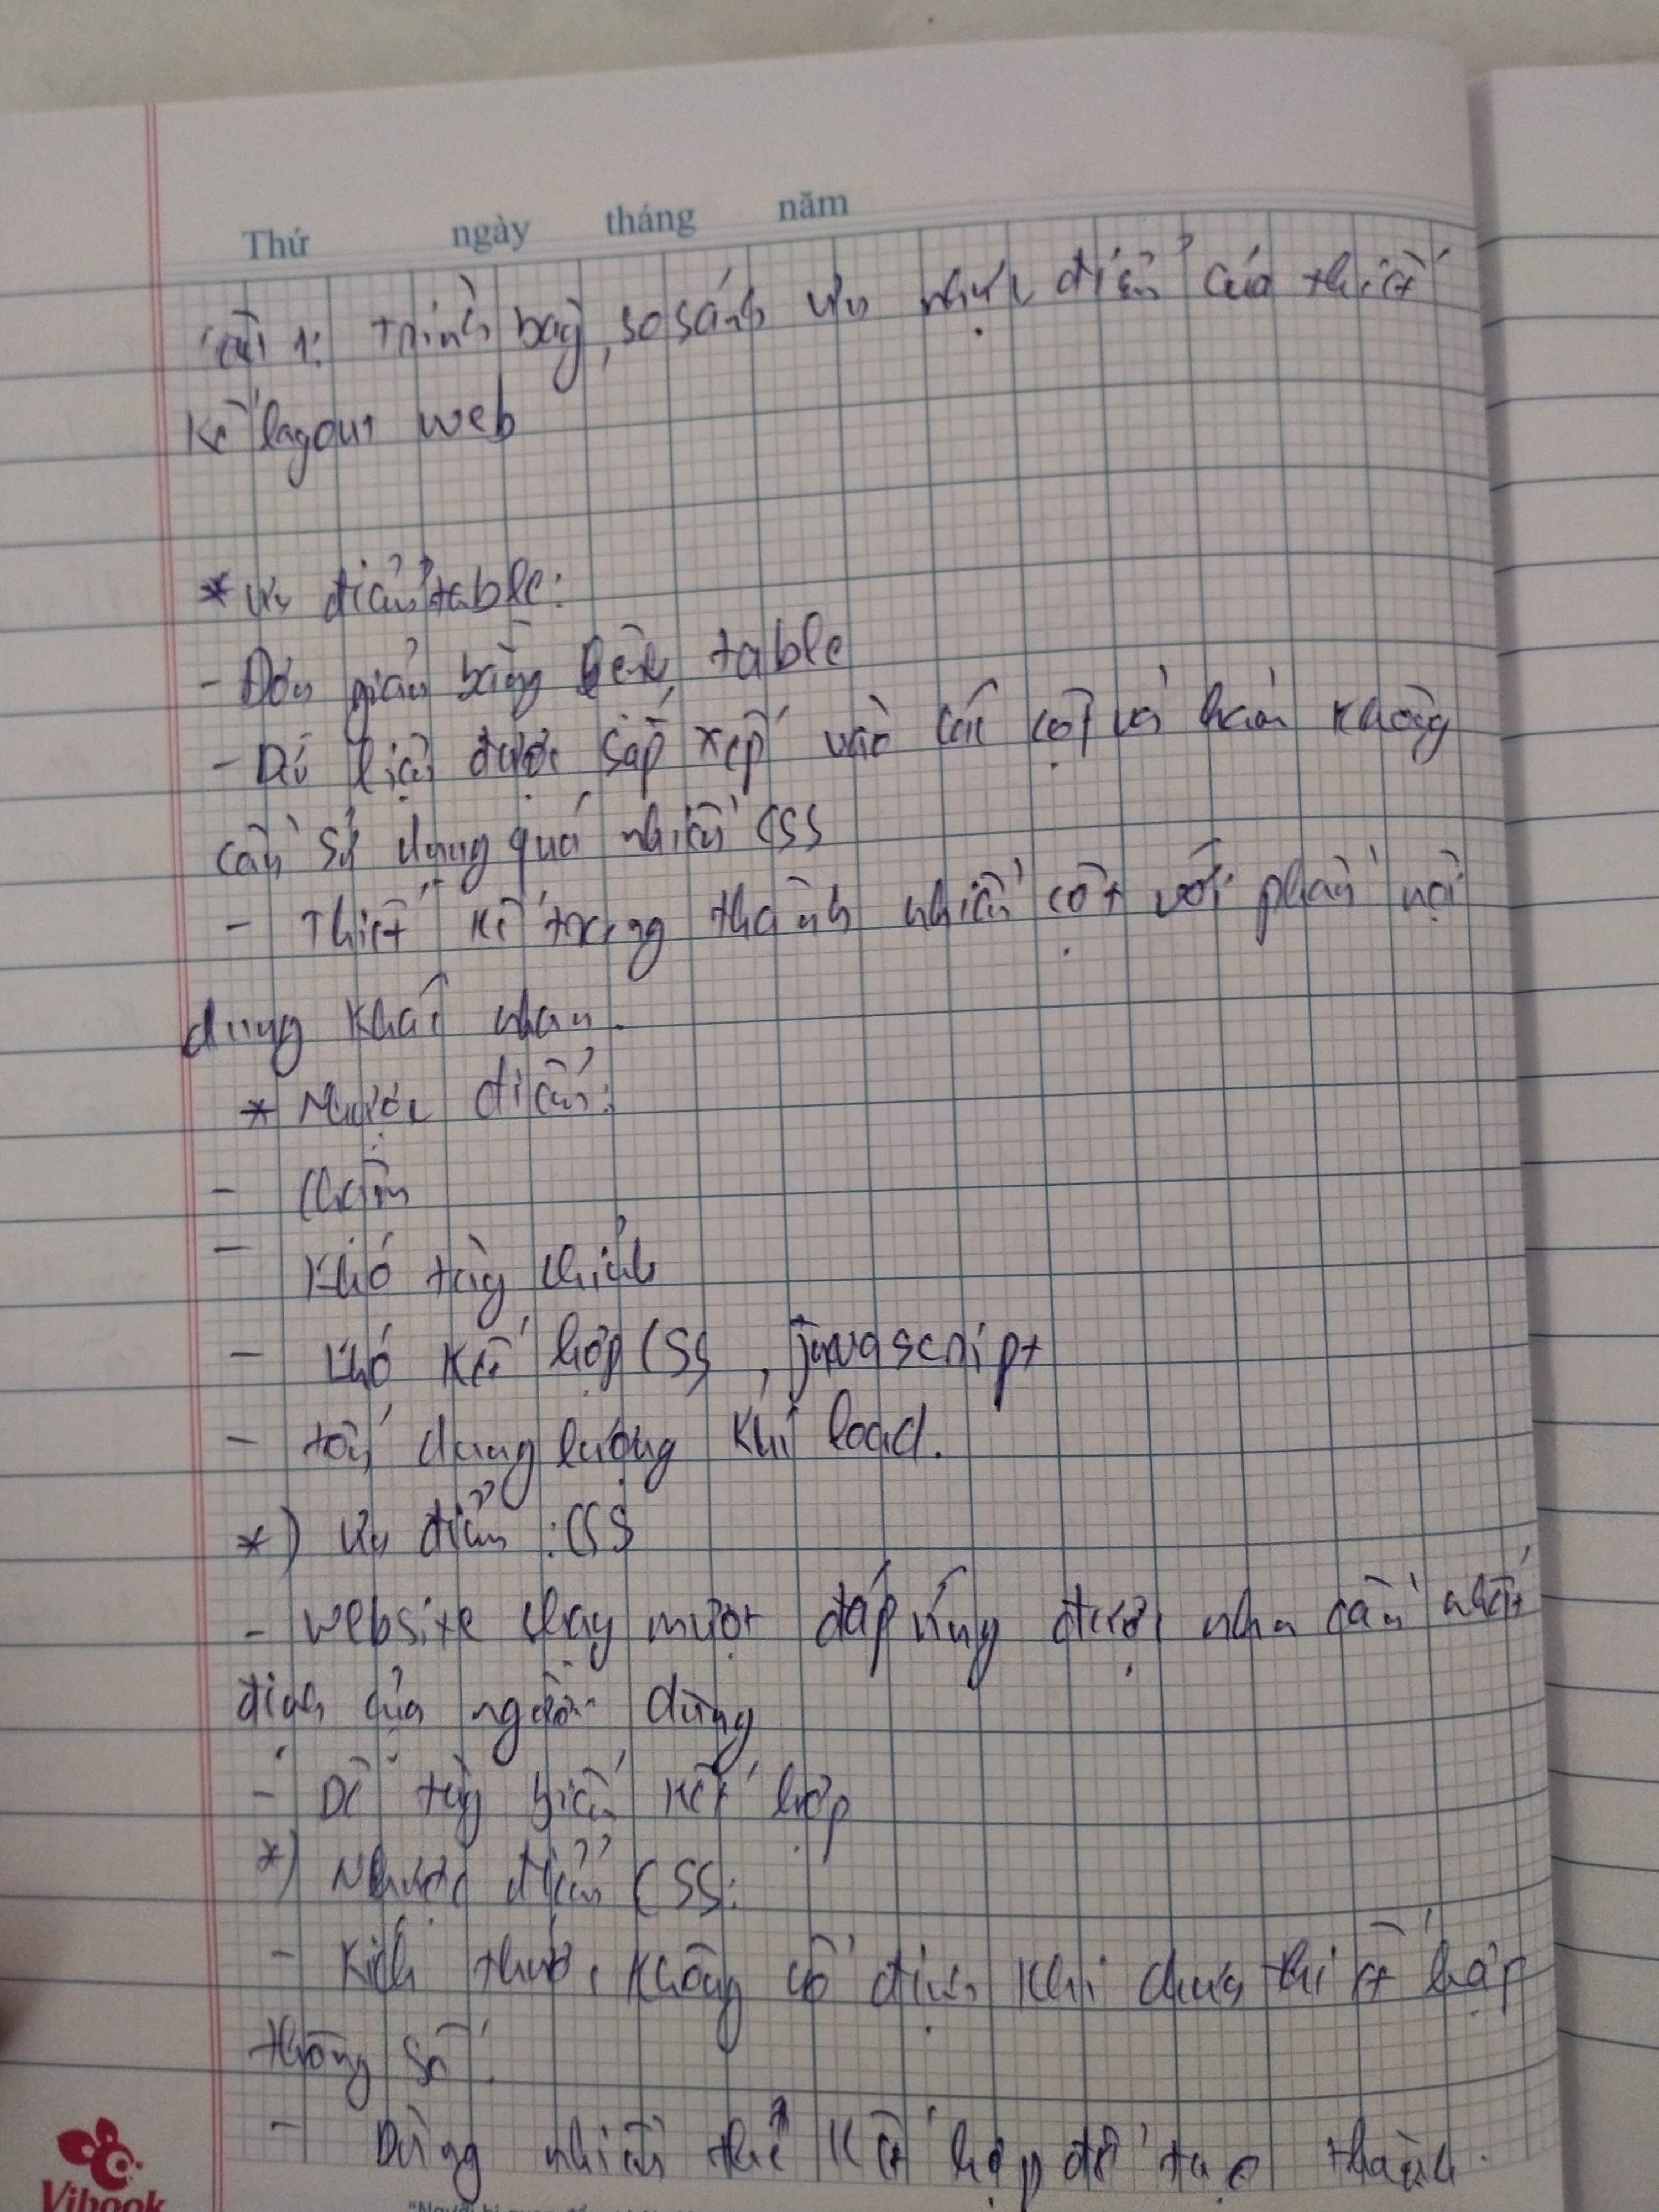 Thứ ngày tháng năm
Câu 1: Trình bày, so sánh ưu nhược điểm của thiết
kế layout web
* Ưu điểm table:
- Đơn giản bằng table
- Dữ liệu được sắp xếp vào các cột và hàng không
cần sử dụng quá nhiều CSS
- Thiết kế trang thành nhiều cột với phần nội
dung khác nhau.
* Nhược điểm:
- Chậm
- Khó tùy chỉnh
- Khó kết hợp CSS, javascript
- tốn dung lượng khi load.
*) Ưu điểm: CSS
- Website chạy mượt đáp ứng được nhu cầu nhất
định của người dùng
- Dễ tùy biến kết hợp
*) Nhược điểm CSS:
- Kích thước không cố định khi chưa thiết lập
thông số.
- Dùng nhiều thẻ kết hợp để tạo thành.
Vibook